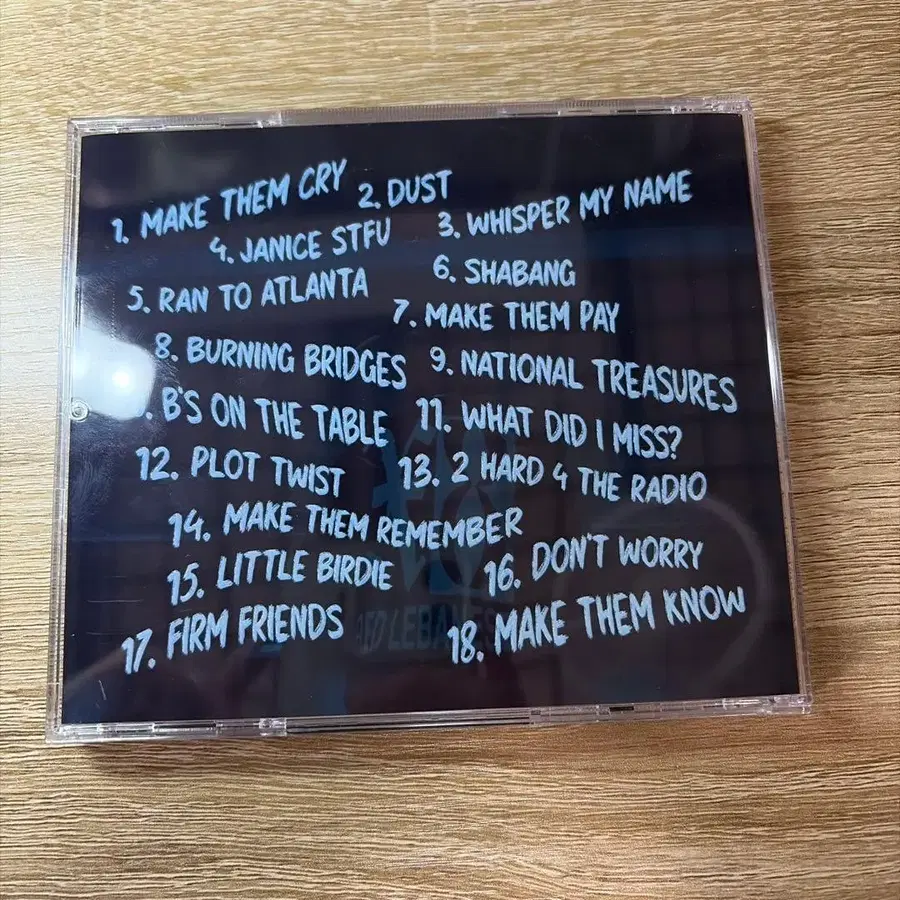 1. MAKE THEM CRY
2. DUST
3. WHISPER MY NAME
4. JANICE STFU
5. RAN TO ATLANTA
6. SHABANG
7. MAKE THEM PAY
8. BURNING BRIDGES
9. NATIONAL TREASURES
. B'S ON THE TABLE
11. WHAT DID I MISS?
12. PLOT TWIST
13. 2 HARD 4 THE RADIO
14. MAKE THEM REMEMBER
15. LITTLE BIRDIE
16. DON'T WORRY
17. FIRM FRIENDS
18. MAKE THEM KNOW